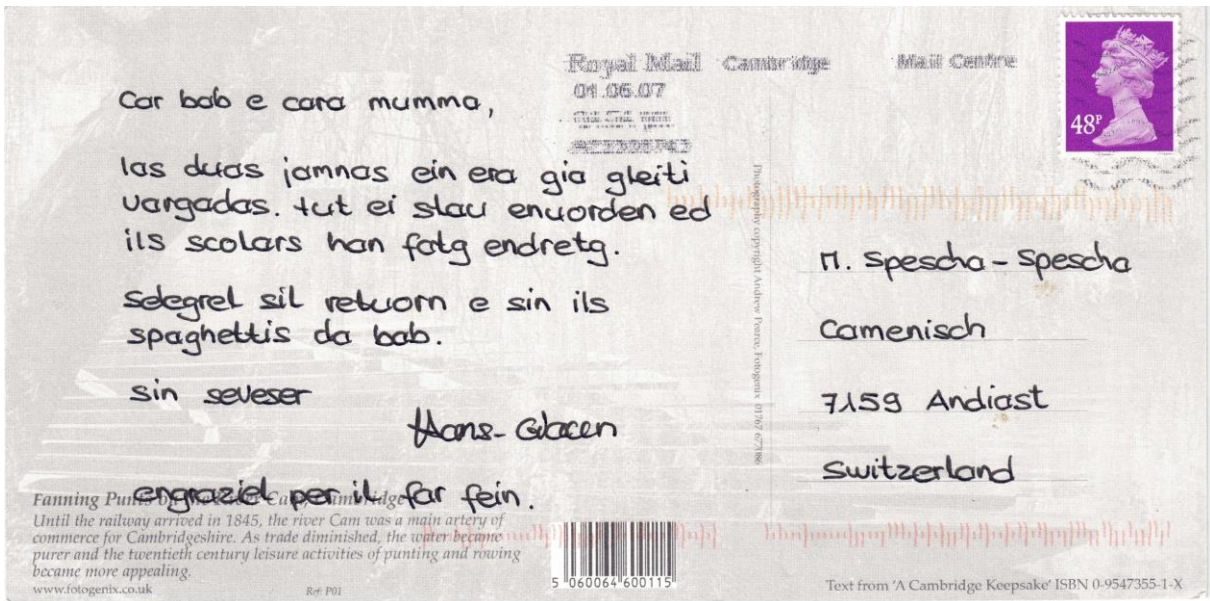 Royal Mail Cambridge Mail Centre
01.06.07
48P
Car bab e cara mumma,
las duas jamnas ein era gia gleiti
vargadas. tut ei stau enuorden ed
ils scolars han fatg endretg.
Selegrel sil retuorn e sin ils
spaghettis da bab.
sin seveser
Hans-
engraziel per il far fein.
M. Spescha-Spescha
Camenisch
7159 Andiast
Switzerland
Photography copyright Andrew Pearce, Fotogenix 01767 677086
Fanning Punts on the River Cam, Cambridge
Until the railway arrived in 1845, the river Cam was a main artery of
commerce for Cambridgeshire. As trade diminished, the water became
purer and the twentieth century leisure activities of punting and rowing
became more appealing.
www.fotogenix.co.uk
Ref P01
5 060064 600115
Text from 'A Cambridge Keepsake' ISBN 0-9547355-1-X